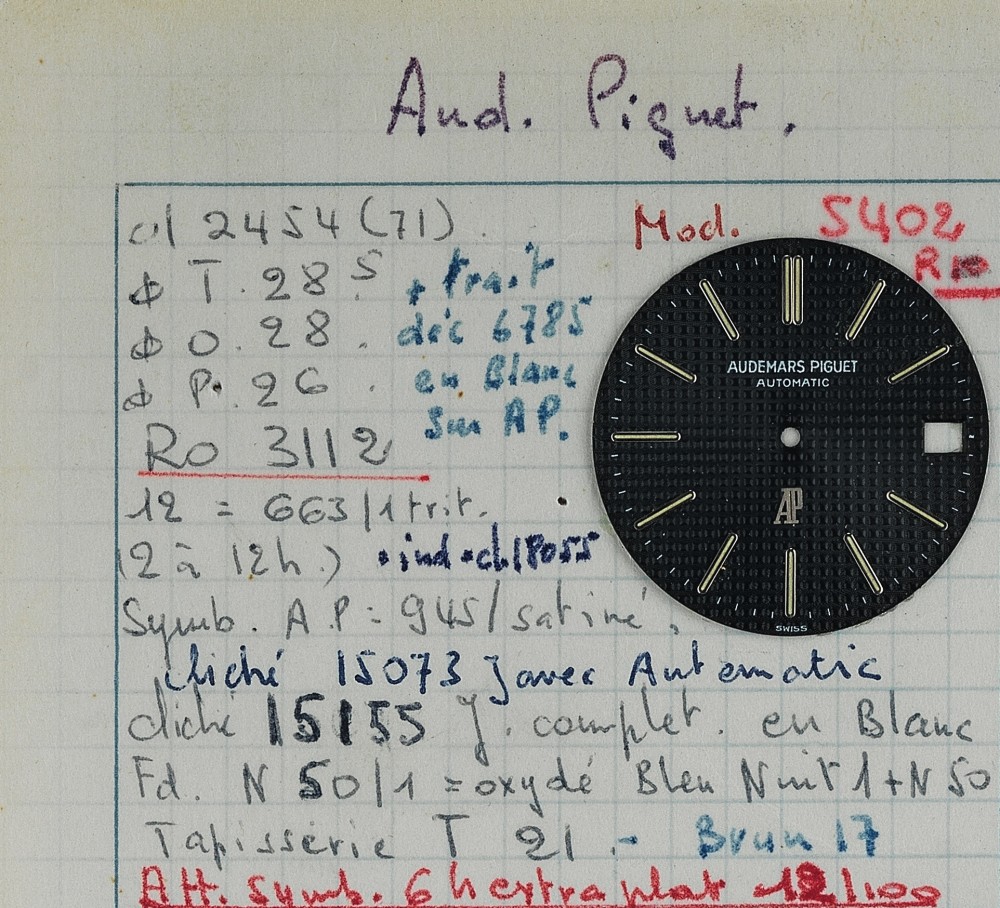 Aud. Piguet.
cl 2454 (71)
Mod. 5402
φ T. 28 5
+ trait
φ O. 28.
déc 6785
φ P. 26.
en Blanc
sur AP.
Ro 3112
12 = 663/1 trit.
(2 à 12h.) . ind. ch 18055
Symb. A.P = 945/satiné.
cliché 15073 J avec Automatic
cliché 15155 J. complet. en Blanc
Fd. N 50/1 = oxydé Bleu Nuit 1 + N 50
Tapisserie T 21 - Brun 17
Att. Symb. 6 h extra plat 12/100
AUDEMARS PIGUET
AUTOMATIC
AP
SWISS